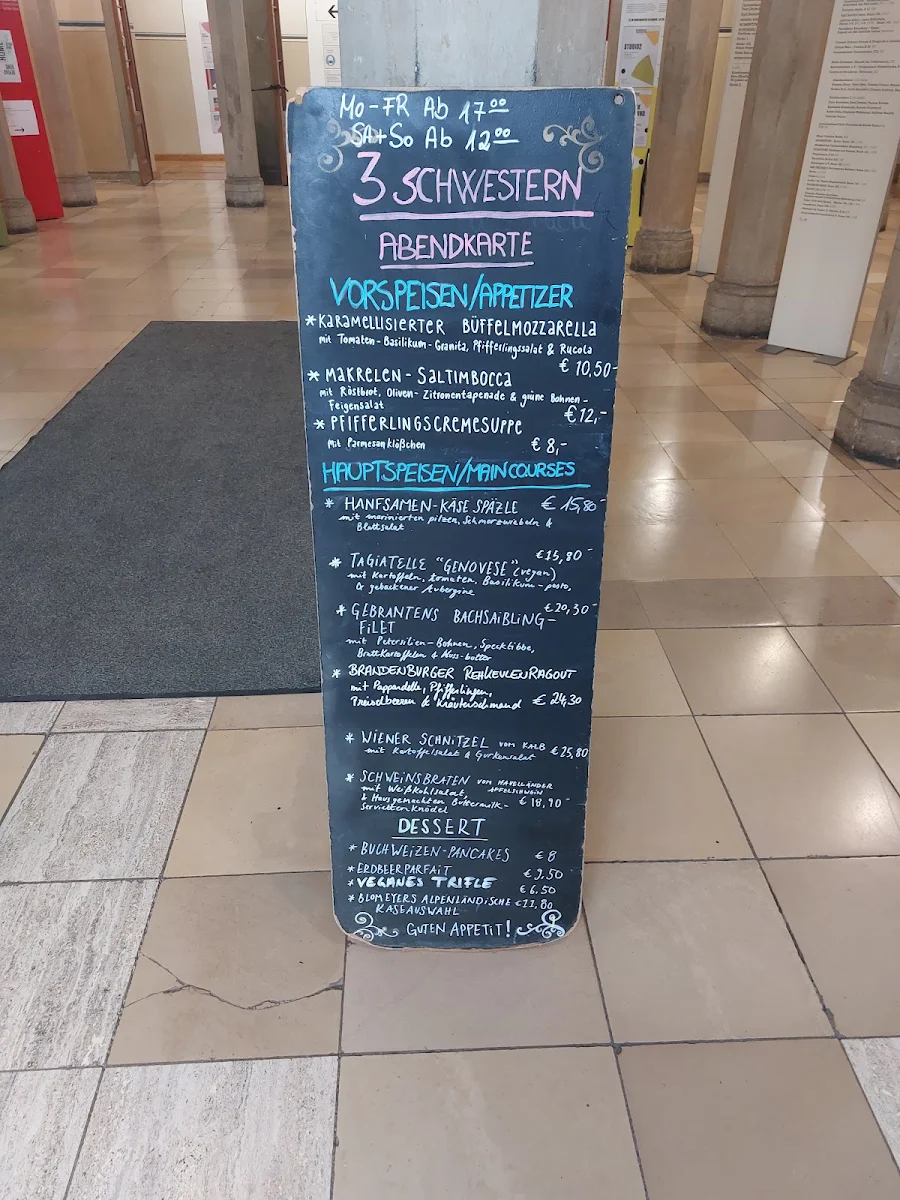 Mo-FR Ab 17⁰⁰
SA+So Ab 12⁰⁰
3 SCHWESTERN
ABENDKARTE
VORSPEISEN/APPETIZER
*KARAMELLISIERTER BÜFFELMOZZARELLA
mit Tomaten-Basilikum-Granita, Pfifferlingssalat & Rucola
€ 10,50-
* MAKRELEN-SALTIMBOCCA
mit Röstbrot, Oliven-Zitronentapenade & grüne Bohnen-
Feigensalat €12,-
* PFIFFERLINGSCREMESUPPE
mit Parmesanklößchen € 8,-
HAUPTSPEISEN/MAIN COURSES
* HANFSAMEN-KÄSE SPÄZLE € 15,80-
mit marinierten pilzen, Schmorzwiebeln &
Blattsalat
€15,80-
* TAGIATELLE "GENOVESE" (vegan)
mit Kartoffeln, tomaten, Basilikum-pesto,
& gebackener Aubergine
€20,30-
* GEBRANTENS BACHSAIBLING-
FILET
mit Petersilien-Bohnen, Specktibbe,
Bratkartoffelen & Nuss-butter
* BRANDENBURGER REHKEULENRAGOUT
mit Pappardelle, Pfifferlingen,
Preiselbeeren & Kräuterschmand € 24,30
* WIENER SCHNITZEL VOM KALB € 25,80
mit Kartoffelsalat & Gurkensalat
* SCHWEINSBRATEN VOM HAVELLÄNDER
APFELSCHWEIN
mit Weißkohlsalat,
& Hausgemachten Buttermilk- € 18,90-
Servietten Knödel
DESSERT
* BUCHWEIZEN-PANCAKES € 8
* ERDBEERPARFAIT € 9.50
* VEGANES TRIFLE € 6.50
* BLOMEYERS ALPENLÄNDISCHE €11,80
KÄSEAUSWAHL
GUTEN APPETIT!
STUDIO2